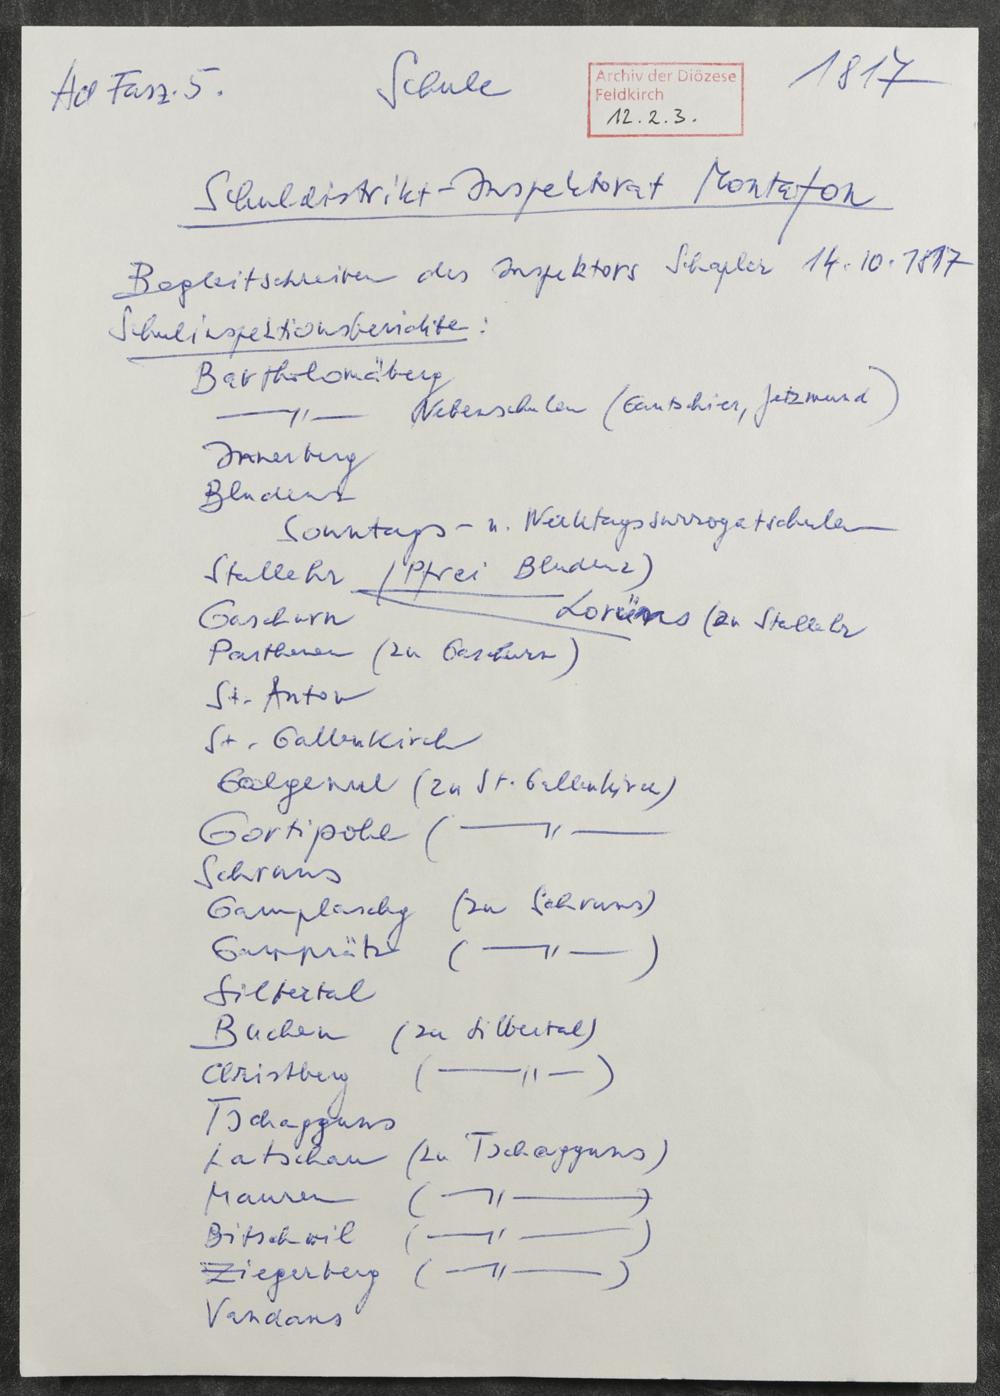 Ad Fasz. 5. Schule 1817
Archiv der Diözese
Feldkirch
12.2.3.
Schuldistrikt-Inspektorat Montafon
Begleitschreiben des Inspektors 14.10.1817
Schulinspektionsberichte:
Bartholomäberg
—〃— Nebenschulen (Gantschier, Jetzmund)
Innerberg
Bludenz
Sonntags- u. Werktagssurrogatschulen
Stallehr (Pfrei Bludenz)
Gaschurn Lorüns (zu Stallehr
Parthenen (zu Gaschurn)
St. Anton
St. Gallenkirch
Galgenul (zu St. Gallenkirch)
Gortipohl (—〃—
Schruns
Gamplaschg (zu Schruns)
Gamprätz (—〃—)
Silbertal
Buchen (zu Silbertal)
Christberg (—〃—)
Tschagguns
Latschau (zu Tschagguns)
Mauren (—〃—)
Bitschwil (—〃—)
Ziegerberg (—〃—)
Vandans